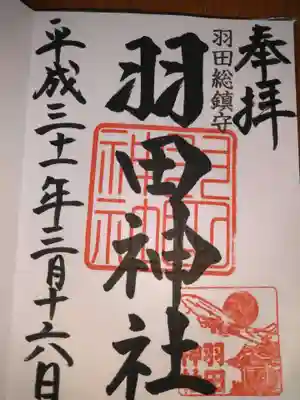 奉拝
羽田総鎮守
羽田神社
平成三十一年三月十六日
羽田神社
羽田神社